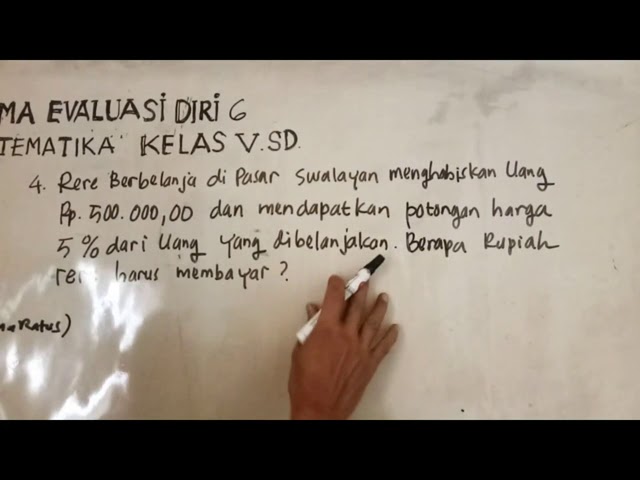 MA EVALUASI DIRI 6
TEMATIKA KELAS V.SD.
4. Rere Berbelanja di Pasar Swalayan menghabiskan Uang
Rp. 500.000,00 dan mendapatkan potongan harga
5% dari Uang yang dibelanjakan. Berapa Rupiah
rere harus membayar?
Ratus)